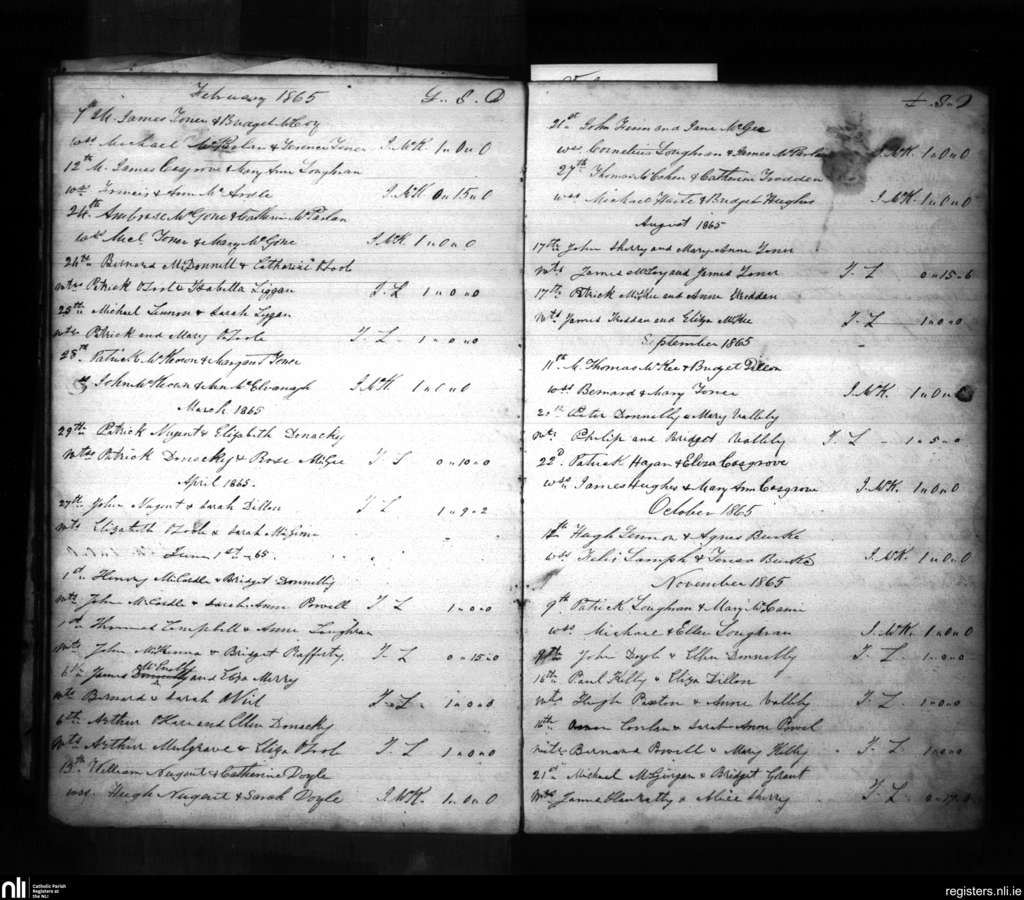 February 1865 £. S. D
7th M. James Toner & Bridget McCoy
wss Michael & Terence Toner J. McK. 1 " 0 " 0
12th M. James Cosgrove & Mary Ann Loughran
wss Francis & Ann McArdle J. McK 0 " 15 " 0
24th Ambrose McGone & Catherine McParlan
wss Micl. Toner & Mary McGone J. McK. 1 " 0 " 0
24th Bernard McDonnell & Catharine OToole
wtss Patrick OToole & Isabella Liggan T. L 1 " 0 " 0
25th Michael Lennon & Sarah Liggan
wtss Patrick and Mary OToole T. L. 1 " 0 " 0
28th Patrick McKeown & Margaret Toner
John McKeown & Ann McElvanagh J. McK 1 " 0 " 0
March 1865
29th Patrick Nugent & Elizabeth Donacky
wtss Patrick Donacky & Rose McGee T. L 0 " 10 " 0
April 1865.
27th John Nugent & Sarah Dillon T. L 1 " 9 " 2
wts Elizabeth OToole & Sarah
June 1st - 65.
1st Henry McCardle & Bridget Donnelly
wts John McCardle & Sarah Anne Powell T. L 1 " 0 " 0
1st Thomas Campbell & Anne Loughran
wts John McKenna & Bridget Rafferty T. L 0 " 15 " 0
6th James and Eliza Merry
wts Bernard & Sarah ONeil T. L. 1 " 0 " 0
6th Arthur OHare and Ellen Donacky
wts Arthur Mulgrave & Eliza OToole T. L 1 " 0 " 0
13th William Nugent & Catherine Doyle
wss. Hugh Nugent & Sarah Doyle J. McK. 1 " 0 " 0
£. S. D
21st John Finn and Jane McGee
wss Cornelius Loughran & James J. McK. 1 " 0 " 0
27th Thomas McCahon & Catherine Fradden
wss Michael Harte & Bridget Hughes J. McK. 1 " 0 " 0
August 1865
17th John Sherry and Mary Anne Toner
wts James McCoy and James Toner T. L 0 " 15 " 6
17th Patrick McKee and Anne
wts James and Eliza McKee T. L 1 " 0 " 0
September 1865
11th M. Thomas McKee & Bridget Dillon
wss Bernard & Mary Toner J. McK. 1 " 0 " 0
Peter Donnelly & Mary Vallely
wts Philip and Bridget Vallely T. L - 1 " 5 " 0
22d Patrick Hagan & Eliza Cosgrove
wss James Hughes & Mary Ann Cosgrove J. McK. 1 " 0 " 0
October 1865
12th Hugh Lennon & Agnes Burke
wss Felix & Teresa Burke J. McK. 1 " 0 " 0
November 1865
9th Patrick Loughran & Mary McCann
wss Michael & Ellen Loughran J. McK. 1 " 0 " 0
9th John Doyle & Ellen Donnelly T. L. 1 " 0 " 0
16th Paul Kelly & Eliza Dillon
wts Hugh & Anne Vallely T. L. 1 " 0 " 0
16th Conlan & Sarah Anne Powel
wits Bernard Powell & Mary Kelly T. L. 1 " 0 " 0
21st Michael McGurgan & Bridget Grant
wts James Hanratty & Alice Sherry T. L.
nli Catholic Parish
Registers at
the NLI
registers.nli.ie